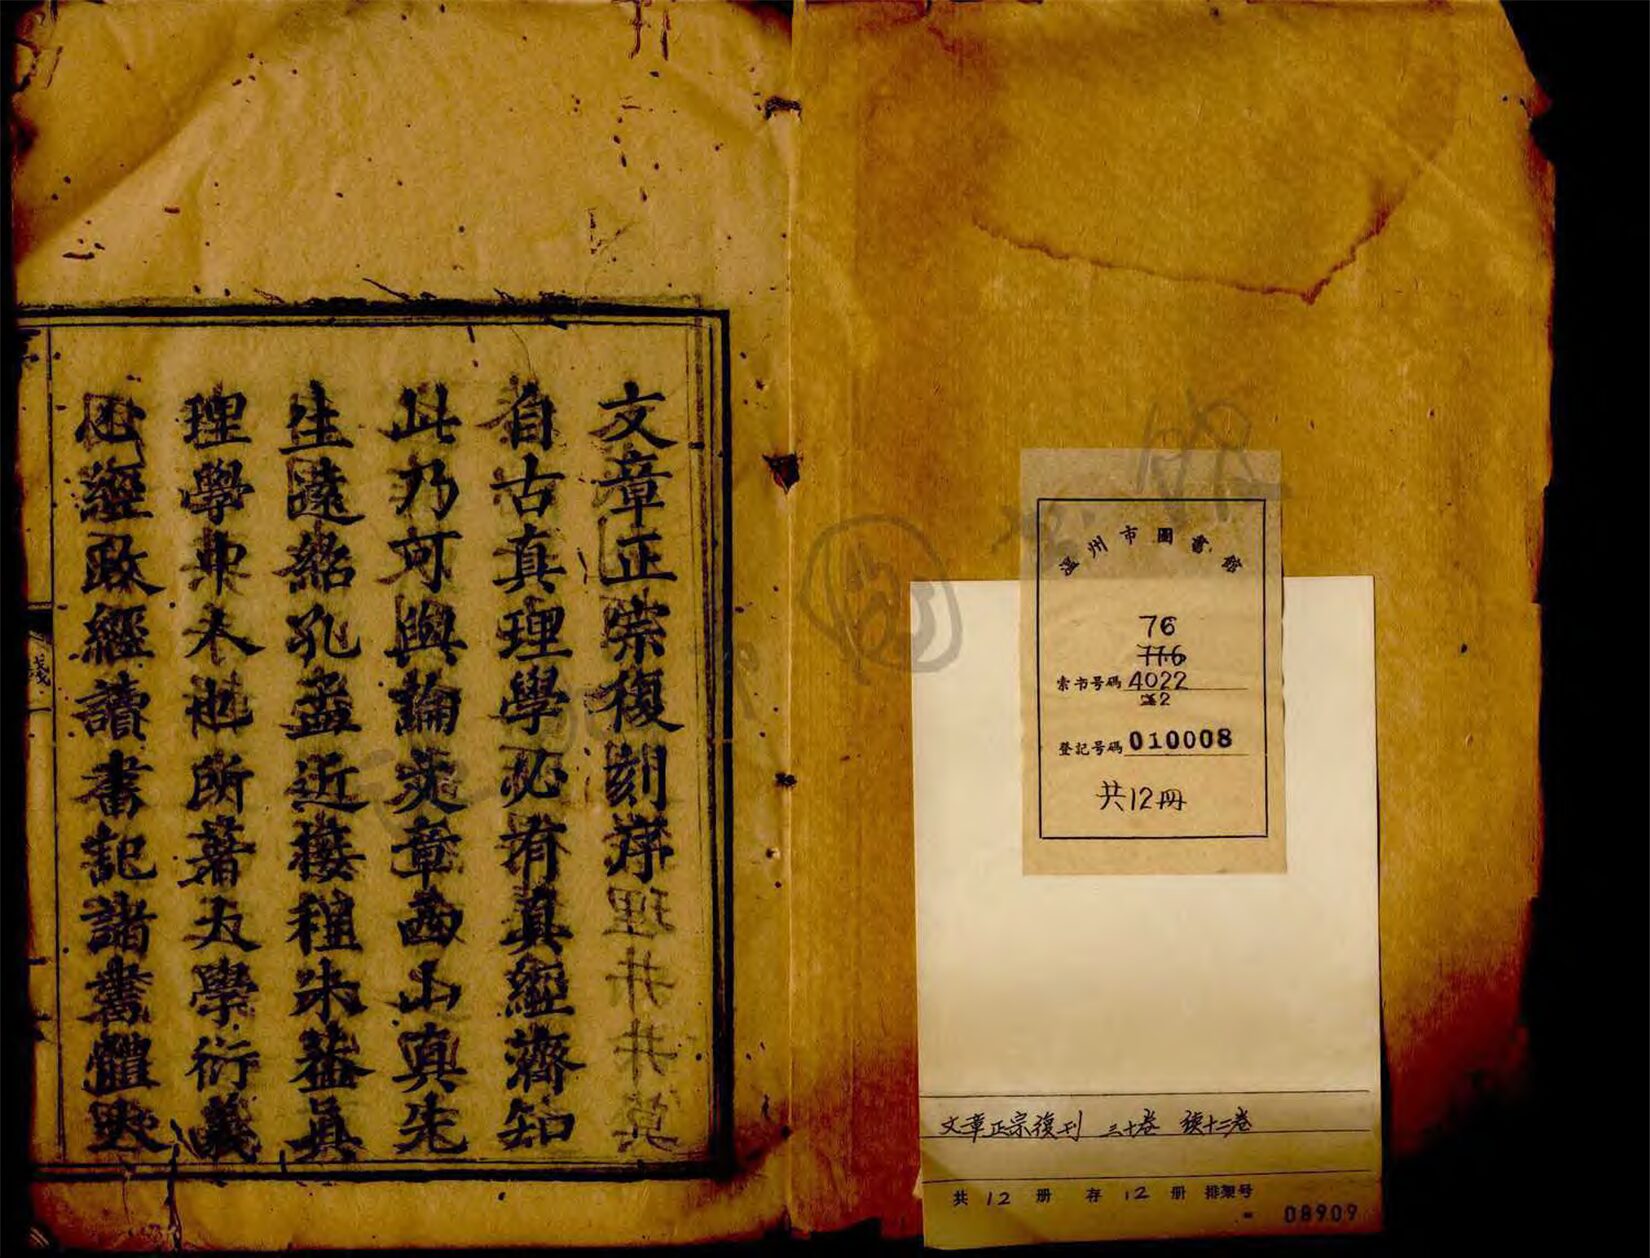 文章正宗復刻序
自古真理學必有真經濟知
此乃可與論文章西山真先
生遠紹孔孟近接程朱葢真
理學中人也所著大學衍義
心經政經讀書記諸書體與
温州市圖書館
76
776
索书号碼 4022
登記号碼 010008
共12冊
文章正宗復刊 三十卷 续十二卷
共 12 册 存 12 册 排架号
08909